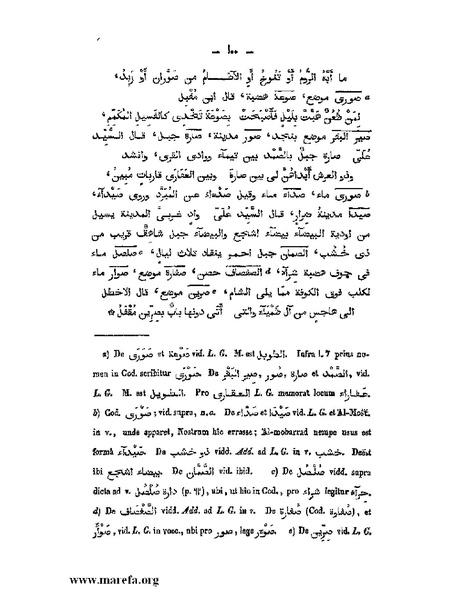 — ١٠٠ —
ما أَيْبُهُ الرُّومُ أَوْ تَنُوخُ أَوِ الآطَامُ مِن صَوَّرَانَ أَوْ زَبَدُ،
صَوْرَى موضع، صَوْعَة هضبة، قال ابن مقبل
لِمَنْ ظُعُنٌ هَبَّتْ بِلَيْلٍ فَأَصْبَحَتْ بِصَوْعَةَ تُحْدَى كالفَسِيلِ المُكَمَّمِ،
صِيرُ البقر موضع بنجد، صَوَر مدينة، صَارَة جبل، قال السَّيِّد
عُلَىّ صارة جبلٌ بالصَّمْد بين تيماء ووادى القرى، وانشد
وذو العرش بين صارة وبين العقارى قاربات مبين،
صورى ماء، صَدَّاء ماء وقيل صَدْءاء عن المُبَرَّد وروى صَيْدَآء،
صَيْدَا مدينة، قال السَّيِّد عُلَىّ واد غربىّ المدينة يسيل
من اودية البيضآء بيضآء اشجع والبيضآء جبل شاهق قريب من
ذى خُشُب، الصَّمّان جبل احمر ينقاد ثلاث ليال، صلصل ماء
فى جوف هضبة، الصفصاف حصن، صُفارة موضع، صوّار ماء
لكلب فوق الكوفة ممّا يلى الشام، صرين موضع، قال الاخطل
الى هاجس من آل ظَمْيَآءَ والتى أَتَى دونها بابٌ بصِرِّينَ مُقْفَلُ ۞
a) De صَوْعَة et صَوْرَى vid. L. G. M. est الطويل. Infra l. 7 prius no-
men in Cod. scribitur صَوْرَى. De صِير البَقَر, صُور, صارة et الصَّمْد, vid.
L. G. M. est الطويل. Pro العقارى L. G. memorat locum عقاراء.
b) Cod. صَوْرَى; vid. supra, n. a. De صَدَّاء et صَيْدَا vid. L. G. et Al-Mošt.
in v., unde apparet, Nostrum hic errasse; Al-mobarrad nempe usus est
formâ صَيْدَآء. De ذو خشب vidd. Add. ad L. G. in v. خشب. Deëst
ibi بيضاء اشجع. De الصَّمَّان vid. ibid. c) De صُلْصُل vidd. supra
dicta ad v. دارة صُلْصُل (p. ٩٣), ubi, ut hic in Cod., pro شراء legitur
d) De الصَّفْصَاف vidd. Add. ad L. G. in v. De صُفارة (Cod. صُفارة), et
صَوْأَر, vid. L. G. in vocc., ubi pro صور, lege صَوْءر. e) De صِرِّين vid. L. G.
www.marefa.org